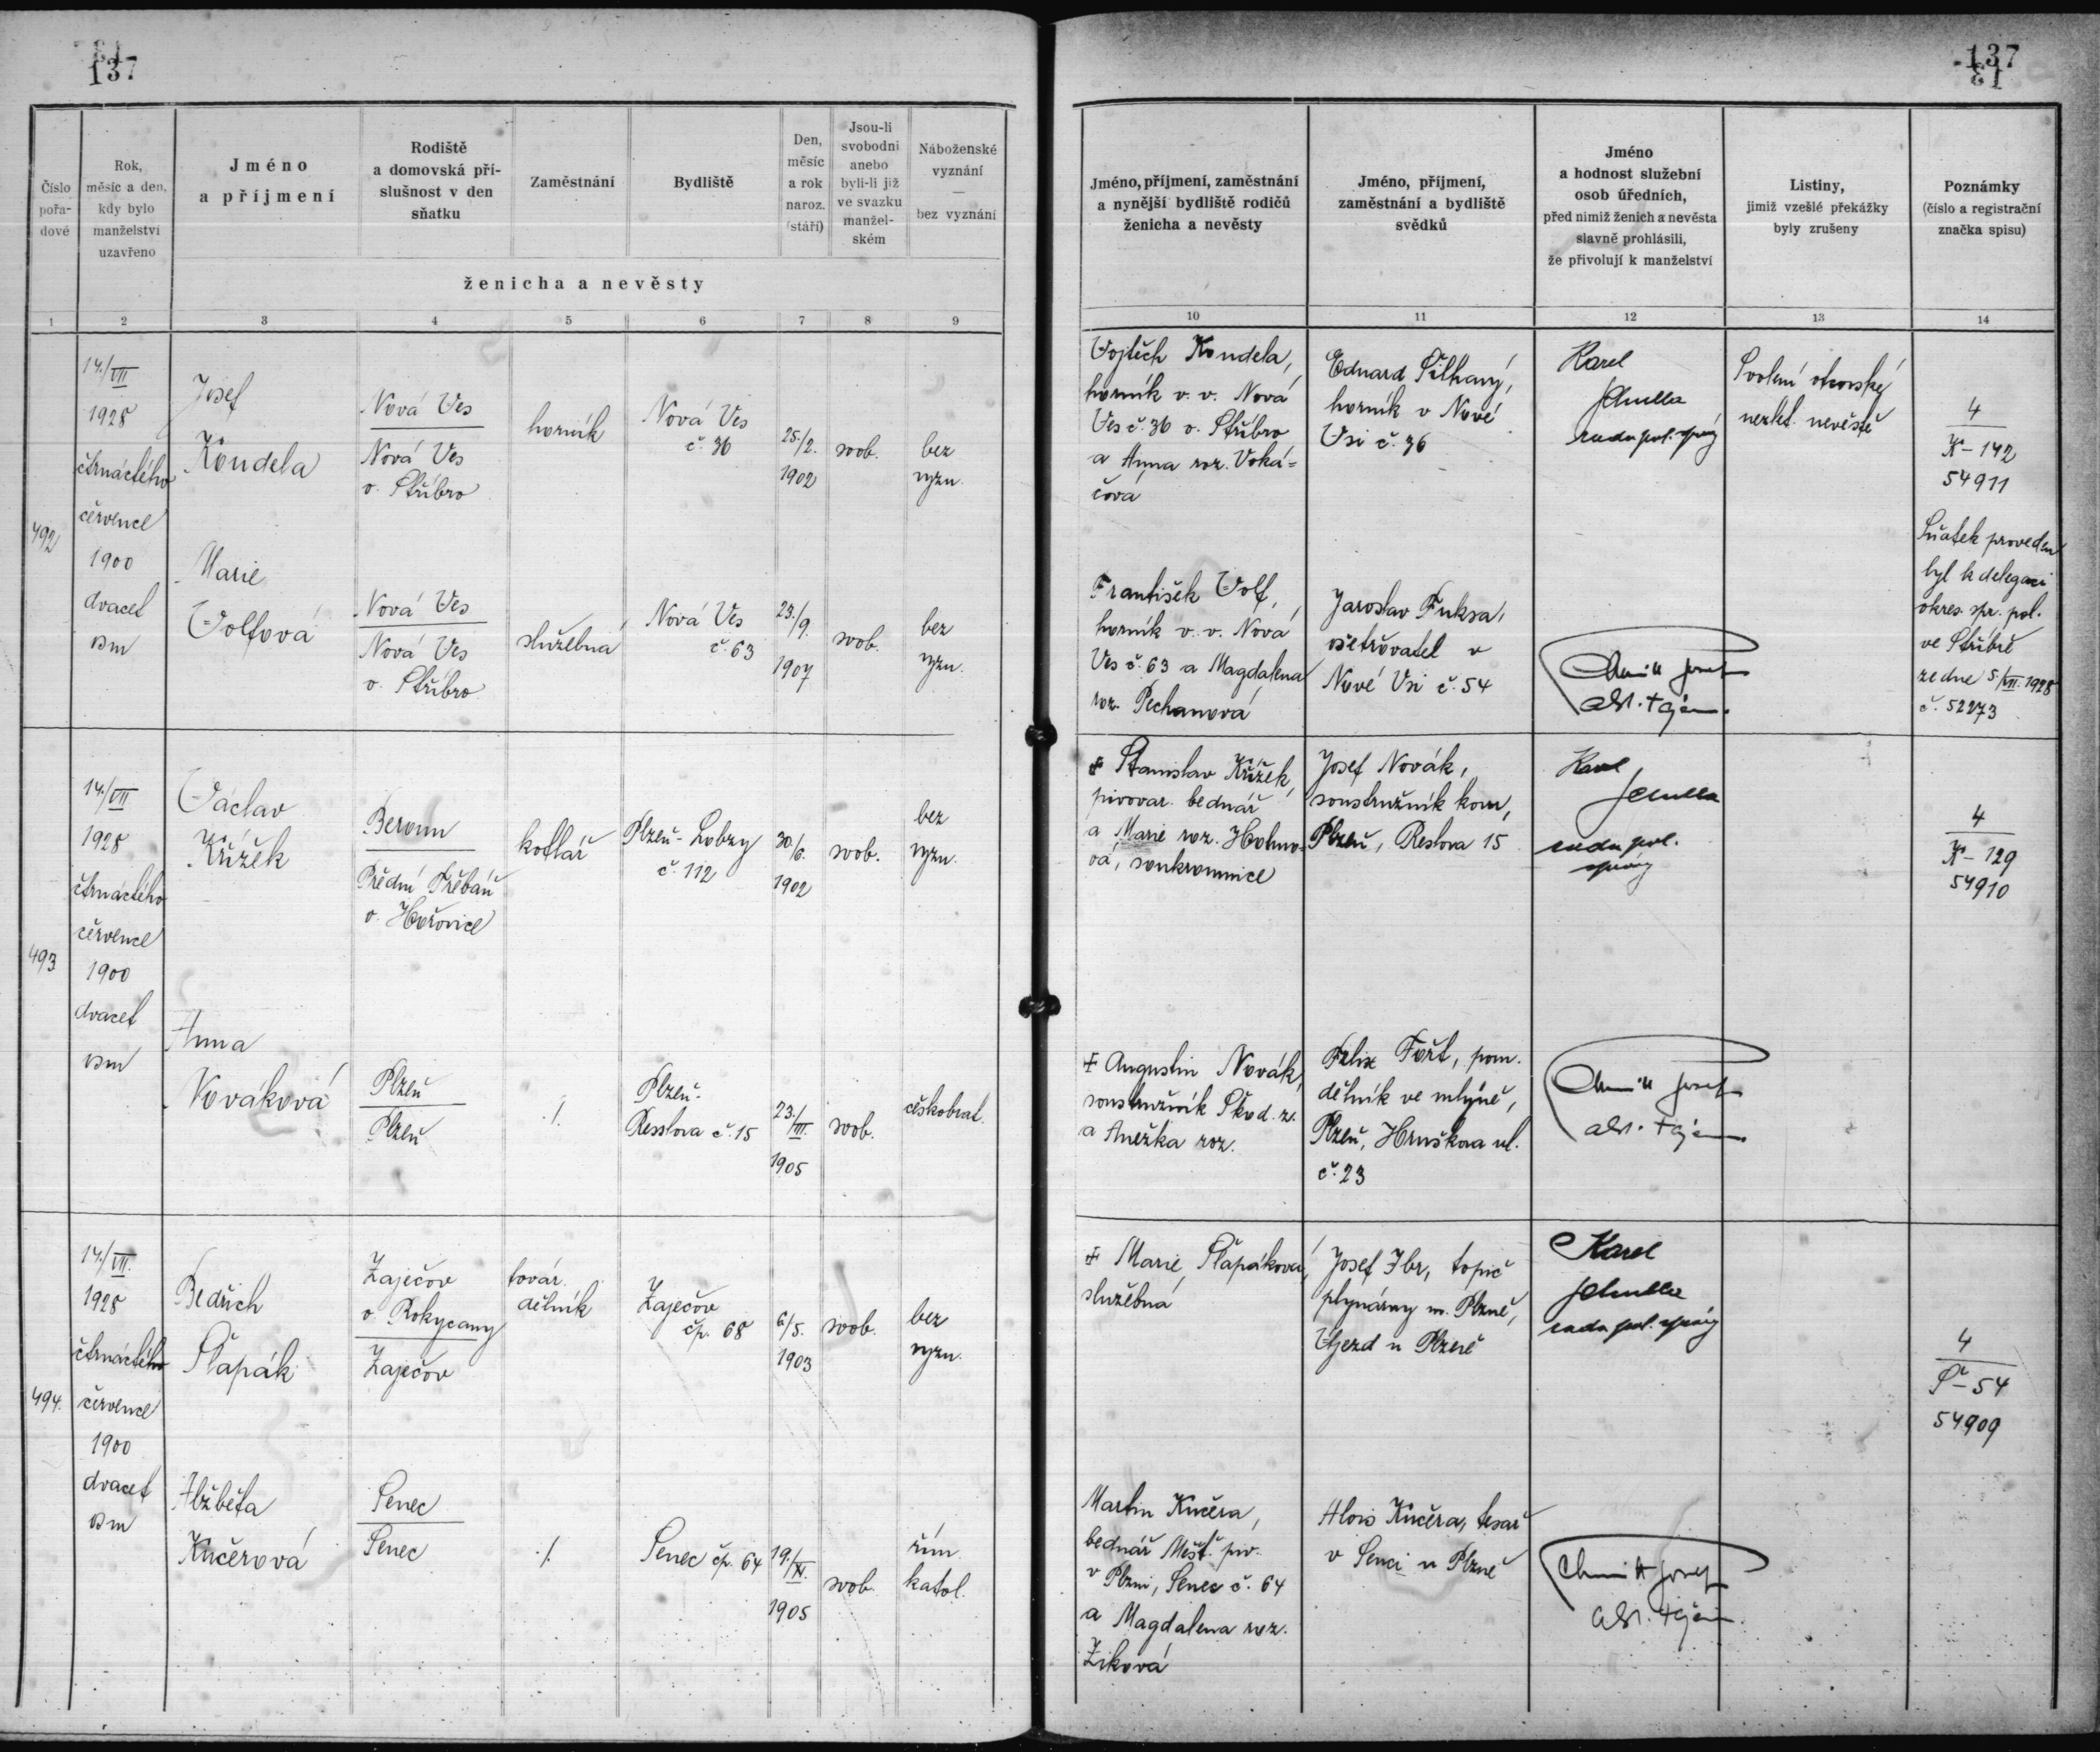 137
137
Číslo pořa-dové
Rok, měsíc a den, kdy bylo manželství uzavřeno
Jméno a příjmení
Rodiště a domovská pří-slušnost v den sňatku
Zaměstnání
Bydliště
Den, měsíc a rok naroz. (stáří)
Jsou-li svobodni anebo byli-li již ve svazku manžel-ském
Náboženské vyznání — bez vyznání
ženicha a nevěsty
Jméno, příjmení, zaměstnání a nynější bydliště rodičů ženicha a nevěsty
Jméno, příjmení, zaměstnání a bydliště svědků
Jméno a hodnost služební osob úředních, před nimiž ženich a nevěsta slavně prohlásili, že přivolují k manželství
Listiny, jimiž vzešlé překážky byly zrušeny
Poznámky (číslo a registrační značka spisu)
1 2 3 4 5 6 7 8 9 10 11 12 13 14
492
14./VII
1928
čtrnáctého
července
1900
dvacet
osm
Josef
Koudela
Nová Ves
Nová Ves
o. Stříbro
horník
Nová Ves
č. 36
25./2.
1902
svob.
bez
vyzn.
Vojtěch Koudela,
horník v. v. Nová
Ves č. 36 o. Stříbro
a Anna roz. Voká-
čová
Eduard Šilhavý,
horník v Nové
Vsi č. 36
Karel
rada pol. správy
Svolení otcovské
nezlet. nevěstě
4
K-142
54911
Marie
Volfová
Nová Ves
Nová Ves
o. Stříbro
služebná
Nová Ves
č. 63
23./9.
1907
svob.
bez
vyzn.
František Volf,
horník v. v. Nová
Ves č. 63 a Magdalena
roz. Pechanová
Jaroslav Fuksa,
ošetřovatel v
Nové Vsi č. 54
Josef
Sňatek proveden
byl k delegaci
okres. spr. pol.
ve Stříbře
ze dne 5/VII. 1928
č. 52273
493
14./VII
1928
čtrnáctého
července
1900
dvacet
osm
Václav
Křížek
Beroun
Přední Třebáň
o. Hořovice
kotlář
Plzeň-Lobzy
č. 112
30./6.
1902
svob.
bez
vyzn.
+ Stanislav Křížek,
pivovar. bednář
a Marie roz.
vá, soukromnice
Josef Novák,
soustružník kovu,
Plzeň, Reslova 15
Karel
rada pol.
správy
4
K-129
54910
Anna
Nováková
Plzeň
Plzeň
./.
Plzeň.
Resslova č. 15
23./III.
1905
svob.
českobrat.
+ Augustin Novák,
soustružník Škod. z.
a Anežka roz.
Felix Fořt, pom.
dělník ve mlýně,
Plzeň, Hruškova ul.
č. 23
Josef
494.
14./VII.
1928
čtrnáctého
července
1900
dvacet
osm
Bedřich
Šlapák
Zaječov
o. Rokycany
Zaječov
továr.
dělník
Zaječov
čp. 68
6./5.
1903
svob.
bez
vyzn.
+ Marie Šlapáková,
služebná
Josef Zbr, topič
plynárny m. Plzně,
Újezd u Plzně
Karel
rada pol. správy
4
Š-54
54909
Alžběta
Kučerová
Senec
Senec
./.
Senec čp. 64
19./XI.
1905
svob.
řím.
katol.
Martin Kučera,
bednář Měšť. piv.
v Plzni, Senec č. 64
a Magdalena roz.
Ziková
Alois Kučera, tesař
v Senci u Plzně
Josef